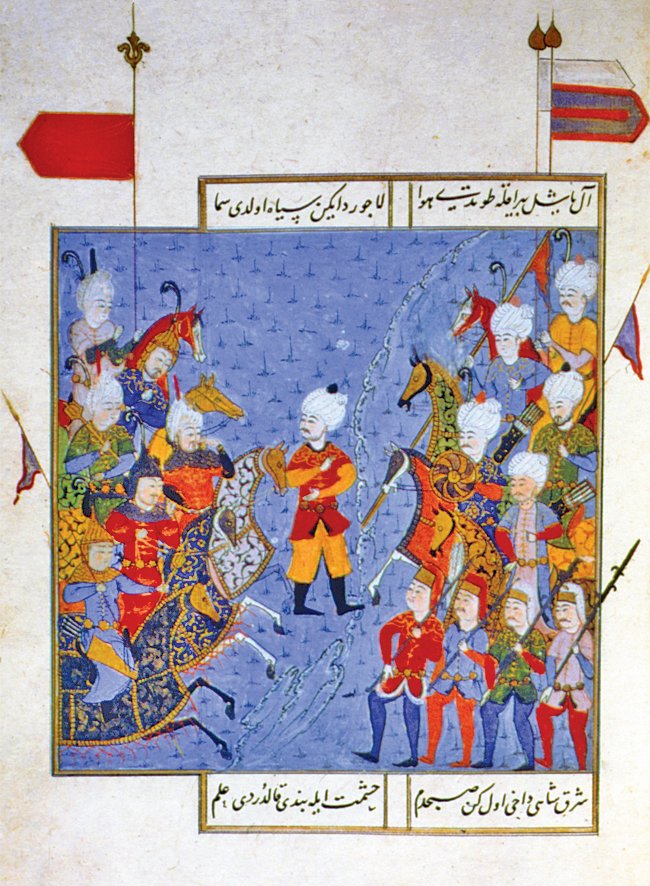 آل یشل بیراغله طوندی هوا
لاجورد ایکن سیاه اولدی سما
شرق شاهی داخی اول کن صبحدم
حشمت ایله بندی قالدردی علم